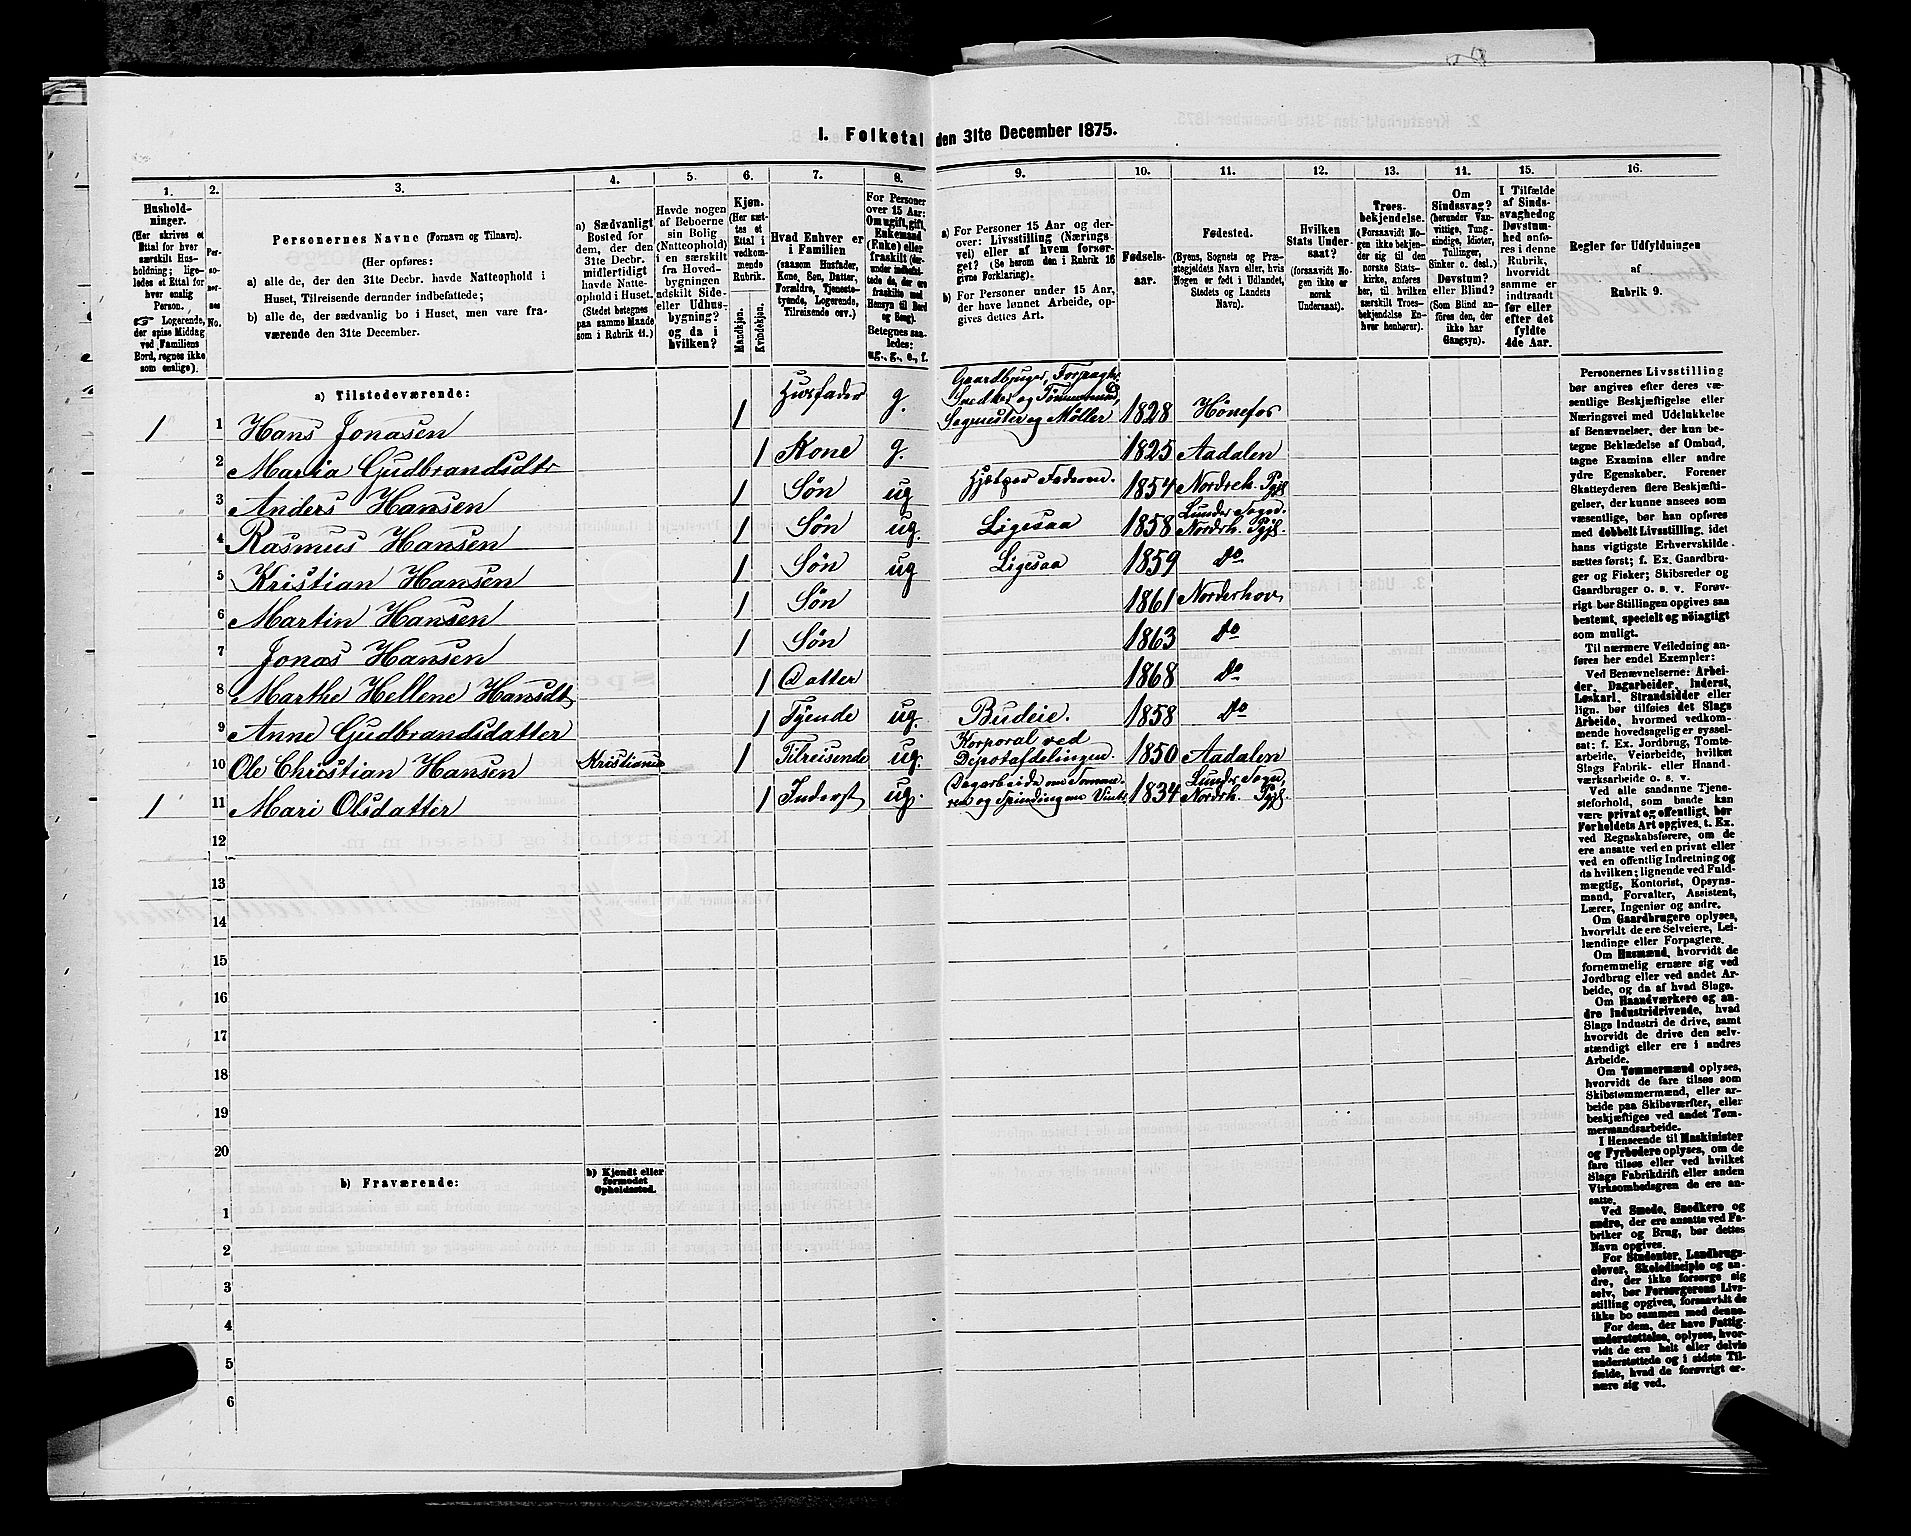 I. Folketal den 31te December 1875.
1. 2. 3. 4. 5. 6. 7. 8. 9. 10. 11. 12. 13. 14. 15. 16.
Hushold-
ninger.
(Her skrives et
Ettal for hver
særskilt Hus-
holdning; lige-
ledes et Ettal
for hver
enslig
Person.
☞ Logerende,
der spise Middag
ved Familiens
Bord, regnes ikke
som enslige).
Per-
so-
ner-
nes
No.
Personernes Navne (Fornavn og Tilnavn).
(Her opføres:
a) alle de, der den 31te Decbr. havde Natteophold i
Huset, Tilreisende derunder indbefattede;
b) alle de, der sædvanlig bo i Huset, men vare fra-
værende den 31te December.
a) Sædvanligt
Bosted for
dem, der den
31te Decbr.
midlertidigt
havde Natte-
ophold i Huset.
(Stedet betegnes
paa samme Maade
som i Rubrik 11.)
Havde nogen
af Beboerne
sin Bolig
(Natteophold)
i en særskilt
fra Hoved-
bygningen
adskilt Side-
eller Udhus-
bygning?
og da i
hvilken?
Kjøn.
(Her sæt-
tes et
Ettal i
vedkom-
mende
Rubrik.
Mandkjøn.
Kvindekjøn.
Hvad Enhver er
i Familien
(saasom Husfader,
Kone, Søn, Datter,
Forældre, Tjeneste-
tyende, Logerende,
Tilreisende osv.)
For Personer
over 15 Aar:
Om ugift, gift,
Enkemand
(Enke) eller
fraskilt (der-
under indbefat-
tede de, der ere
fraskilte med
Hensyn til Bord
og Seng).
Betegnes saa-
ledes:
ug., g., e., f.
a) For Personer 15 Aar og der-
over: Livsstilling (Nærings-
vei) eller af hvem forsør-
get? (Se herom den i Rubrik 16
givne Forklaring).
b) For Personer under 15 Aar,
der have lønnet Arbeide, op-
gives dettes Art.
Fødsels-
aar.
Fødested.
(Byens, Sognets og Præ-
stegjeldets Navn eller, hvis
Nogen er født i Udlandet,
Stedets og Landets
Navn).
Hvilken
Stats Under-
saat?
(forsaavidt No-
gen ikke er
norsk
Undersaat).
Troes-
bekjendelse.
(Forsaavidt No-
gen ikke bekjen-
der sig til den
norske Stats-
kirke, anføres
her, til hvilken
særskilt Troes-
bekjendelse En-
hver henhører).
Om
Sindssvag?
(herunder Van-
vittige, Tung-
sindige, Idioter,
Tullinger,
Sinker o. desl.)
Døvstum?
eller Blind?
(Som Blind an-
føres den, der
ikke har
Gangsyn).
I Tilfælde
af Sinds-
svaghed og
Døvstum-
hed anfø-
res i denne
Rubrik,
hvorvidt
samme er
indtraadt
før eller
efter det
fyldte
4de Aar.
Regler for Udfyldningen
af
Rubrik 9.
a) Tilstedeværende:
1 1 Hans Jonasen 1 Husfader g. Gaardbruger, Forpagter, Snedker og Tømmermand, Sagmester og Møller 1828 Hønefos
2 Maria Gudbrandsdtr 1 Kone g. 1825 Aadalen
3 Anders Hansen 1 Søn ug Hjælper Faderen. 1854 Nordreh. Pgjl
4 Rasmus Hansen 1 Søn ug. Ligesaa 1858 Lunder Sogn. Nordrh. Pgjl.
5 Kristian Hansen 1 Søn ug Ligesaa 1859 do
6 Martin Hansen 1 Søn 1861 Norderhov
7 Jonas Hansen 1 Søn 1863 do
8 Marthe Hellene Hansdt 1 Datter 1868 do
9 Anne Gudbrandsdatter 1 Tyende ug. Budeie. 1858 do
10 Ole Christian Hansen Kristiania 1 Tilreisende ug. Korporal ved Depotafdelingen. 1850 Aadalen
1 11 Mari Olsdatter 1 Inderst ug. Dagarbeide om Sommeren og Spinding om Vint. 1834 Lunder Sogn Nordrh. Pgjl.
12
13
14
15
16
17
18
19
20
b) Fraværende:
b) Kjendt eller
formodet
Opholdssted.
1
2
3
4
5
6
Personernes Livsstilling
bør angives efter deres væ-
sentlige Beskjæftigelse eller
Næringsvei med Udelukkelse
af Benævnelser, der kun be-
tegne Beklædelse af Ombud,
tagne Examina eller andre
ydre Egenskaber. Forener
Skatteyderen flere Beskjæfti-
gelser, der kunne ansees som
væsentlige, bør han opføres
med dobbelt Livsstilling, idet
hans vigtigste Erhvervskilde
sættes først; f. Ex. Gaardbru-
ger og Fisker; Skibsreder og
Gaardbruger o. s. v. Forøv-
rigt bør Stillingen opgives saa
bestemt, specielt og nøiagtigt
som muligt.
Til nærmere Veiledning an-
føres her endel Exempler:
Ved Benævnelserne: Arbei-
der, Dagarbeider, Inderst,
Løskarl, Strandsidder eller
lign. bør tilføies det Slags
Arbeide, hvormed vedkom-
mende hovedsagelig er syssel-
sat; f. Ex. Jordbrug, Tomte-
arbeide, Veiarbeide, hvilket
Slags Fabrik- eller Haand-
værksarbeide o. s. v.
Ved alle saadanne Tjene-
steforhold, som baade kan
være privat og offentligt, bør
Forholdets Art opgives, t. Ex.
ved Regnskabsførere, om de
ere ansatte ved en privat eller
ved en offentlig Indretning og
da hvilken; lignende ved Fuld-
mægtig, Kontorist, Opsyns-
mand, Forvalter, Assistent,
Lærer, Ingeniør og andre.
Om Gaardbrugere oplyses,
hvorvidt de ere Selveiere, Lei-
lændinge eller Forpagtere.
Om Husmænd, hvorvidt de
fornemmelig ernære sig ved
Jordbrug eller ved andet Ar-
beide, og da af hvad Slags.
Om Haandværkere og an-
dre Industridrivende, hvad
Slags Industri de drive, samt
hvorvidt de drive den selv-
stændigt eller ere i andres
Arbeide.
Om Tømmermænd oplyses,
hvorvidt de fare tilsøs som
Skibstømmermænd, eller ar-
beide paa Skibsværfter, eller
beskjæftiges ved andet Tøm-
mermandsarbeide.
I Henseende til Maskinister
og Fyrbødere oplyses, om de
fare tilsøs eller ved hvilket
Slags Fabrikdrift eller anden
Virksomhedsgren de ere an-
satte.
Ved Smede, Snedkere og
andre, der ere ansatte ved Fa-
briker og Brug, bør dettes
Navn opgives.
For Studenter, Landbrugs-
elever, Skoledisciple og an-
dre, der ikke forsørge sig
selv, bør Forsørgerens Livs-
stilling opgives, forsaavidt de
ikke bo sammen med denne.
For dem, der have Fattig-
understøttelse, oplyses, hvor-
vidt de ere helt eller delvis
understøttede og i sidste Til-
fælde, hvad de forøvrigt er-
nære sig ved.